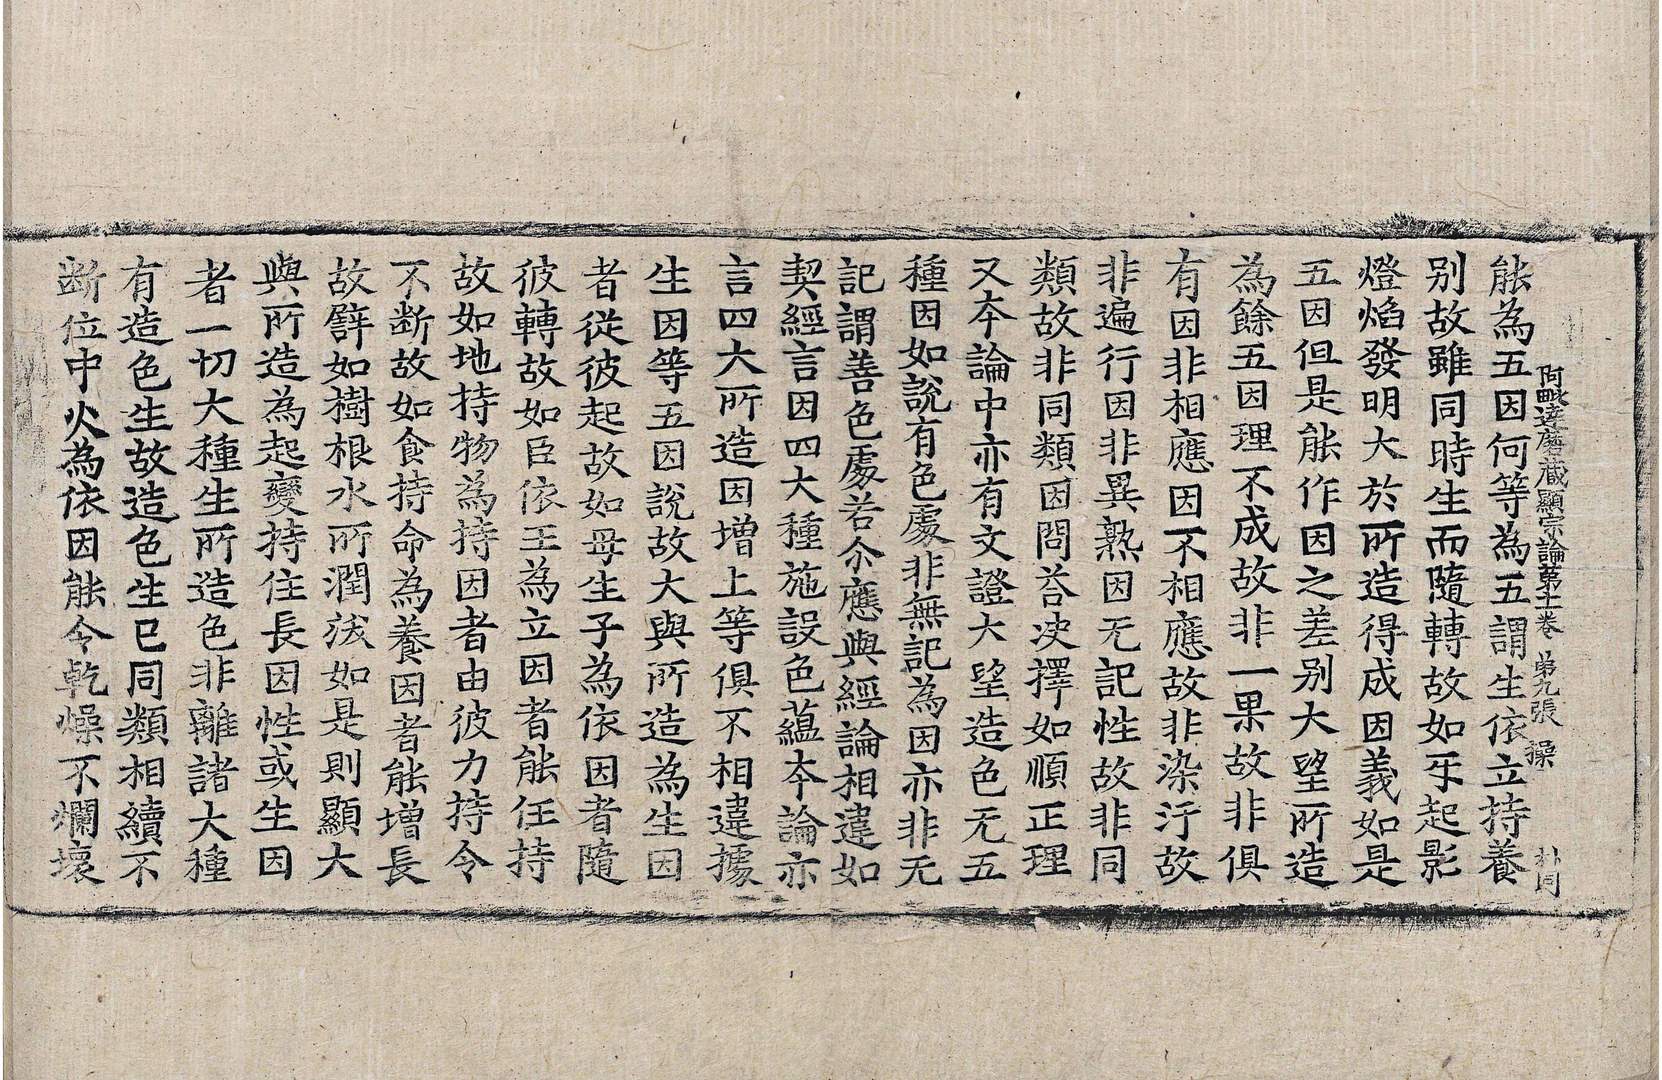 阿毗達磨藏顯宗論苐十一卷 苐九張 操
能為五因何等為五謂生依立持養
别故雖同時生而隨轉故如牙起影
燈焰發明大於所造得成因義如是
五因但是能作因之差别大望所造
為餘五因理不成故非一果故非俱
有因非相應因不相應故非染汙故
非遍行因非異熟因无記性故非同
類故非同類因問荅決擇如順正理
又夲論中亦有文證大望造色无五
種因如說有色處非無記為因亦非无
記謂善色處若尒應與經論相違如
契經言因四大種施設色蘊夲論亦
言四大所造因增上等俱不相違據
生因等五因說故大與所造為生因
者從彼起故如母生子為依因者隨
彼轉故如臣依王為立因者能任持
故如地持物為持因者由彼力持令
不断故如食持命為養因者能增長
故譬如樹根水所潤沃如是則顯大
與所造為起變持住長因性或生因
者一切大種生所造色非離諸大種
有造色生故造色生已同類相續不
断位中火為依因能令乾燥不爛壞